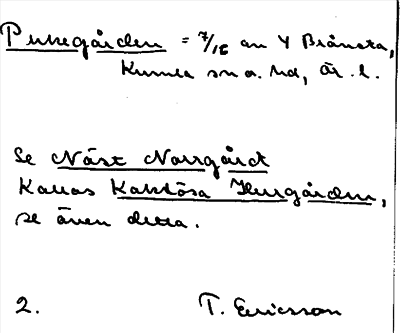 Pukegården = 7/16 av 4 Brånsta,
Kumla sn o. hd, Ör. l.
Se Näst Norrgårdt
Kallas Kaklösa Herrgården,
se även detta.
2. T. Ericsson